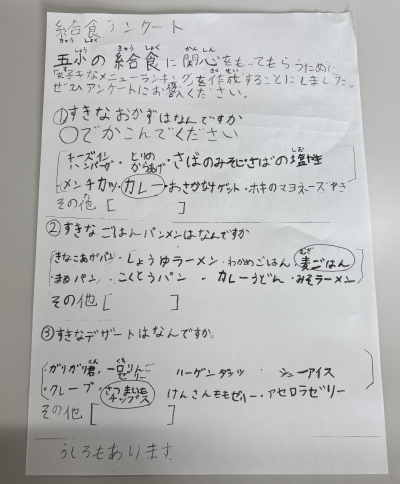 給食アンケート
きゅうしょく
五小の給食に関心をもってもらうために
好きなメニューランキングを作成することにしました。
ぜひアンケートにお答えください。
①すきなおかずはなんですか
○でかこんでください
チーズインハンバーグ・とりのからあげ・さばのみそに・さばの塩焼
メンチカツ・カレー・おさかなナゲット・ホキのマヨネーズやき
その他[ ]
②すきなごはんパンメンはなんですか
きなこあげパン・しょうゆラーメン・わかめごはん・麦ごはん
まるパン・こくとうパン・カレーうどん・みそラーメン
その他[ ]
③すきなデザートはなんですか。
ガリガリ君・一口りんごゼリー ハーゲンダッツ シューアイス
・クレープ・さつまいもチップス けんさんももゼリー・アセロラゼリー
その他[ ]
うしろもあります